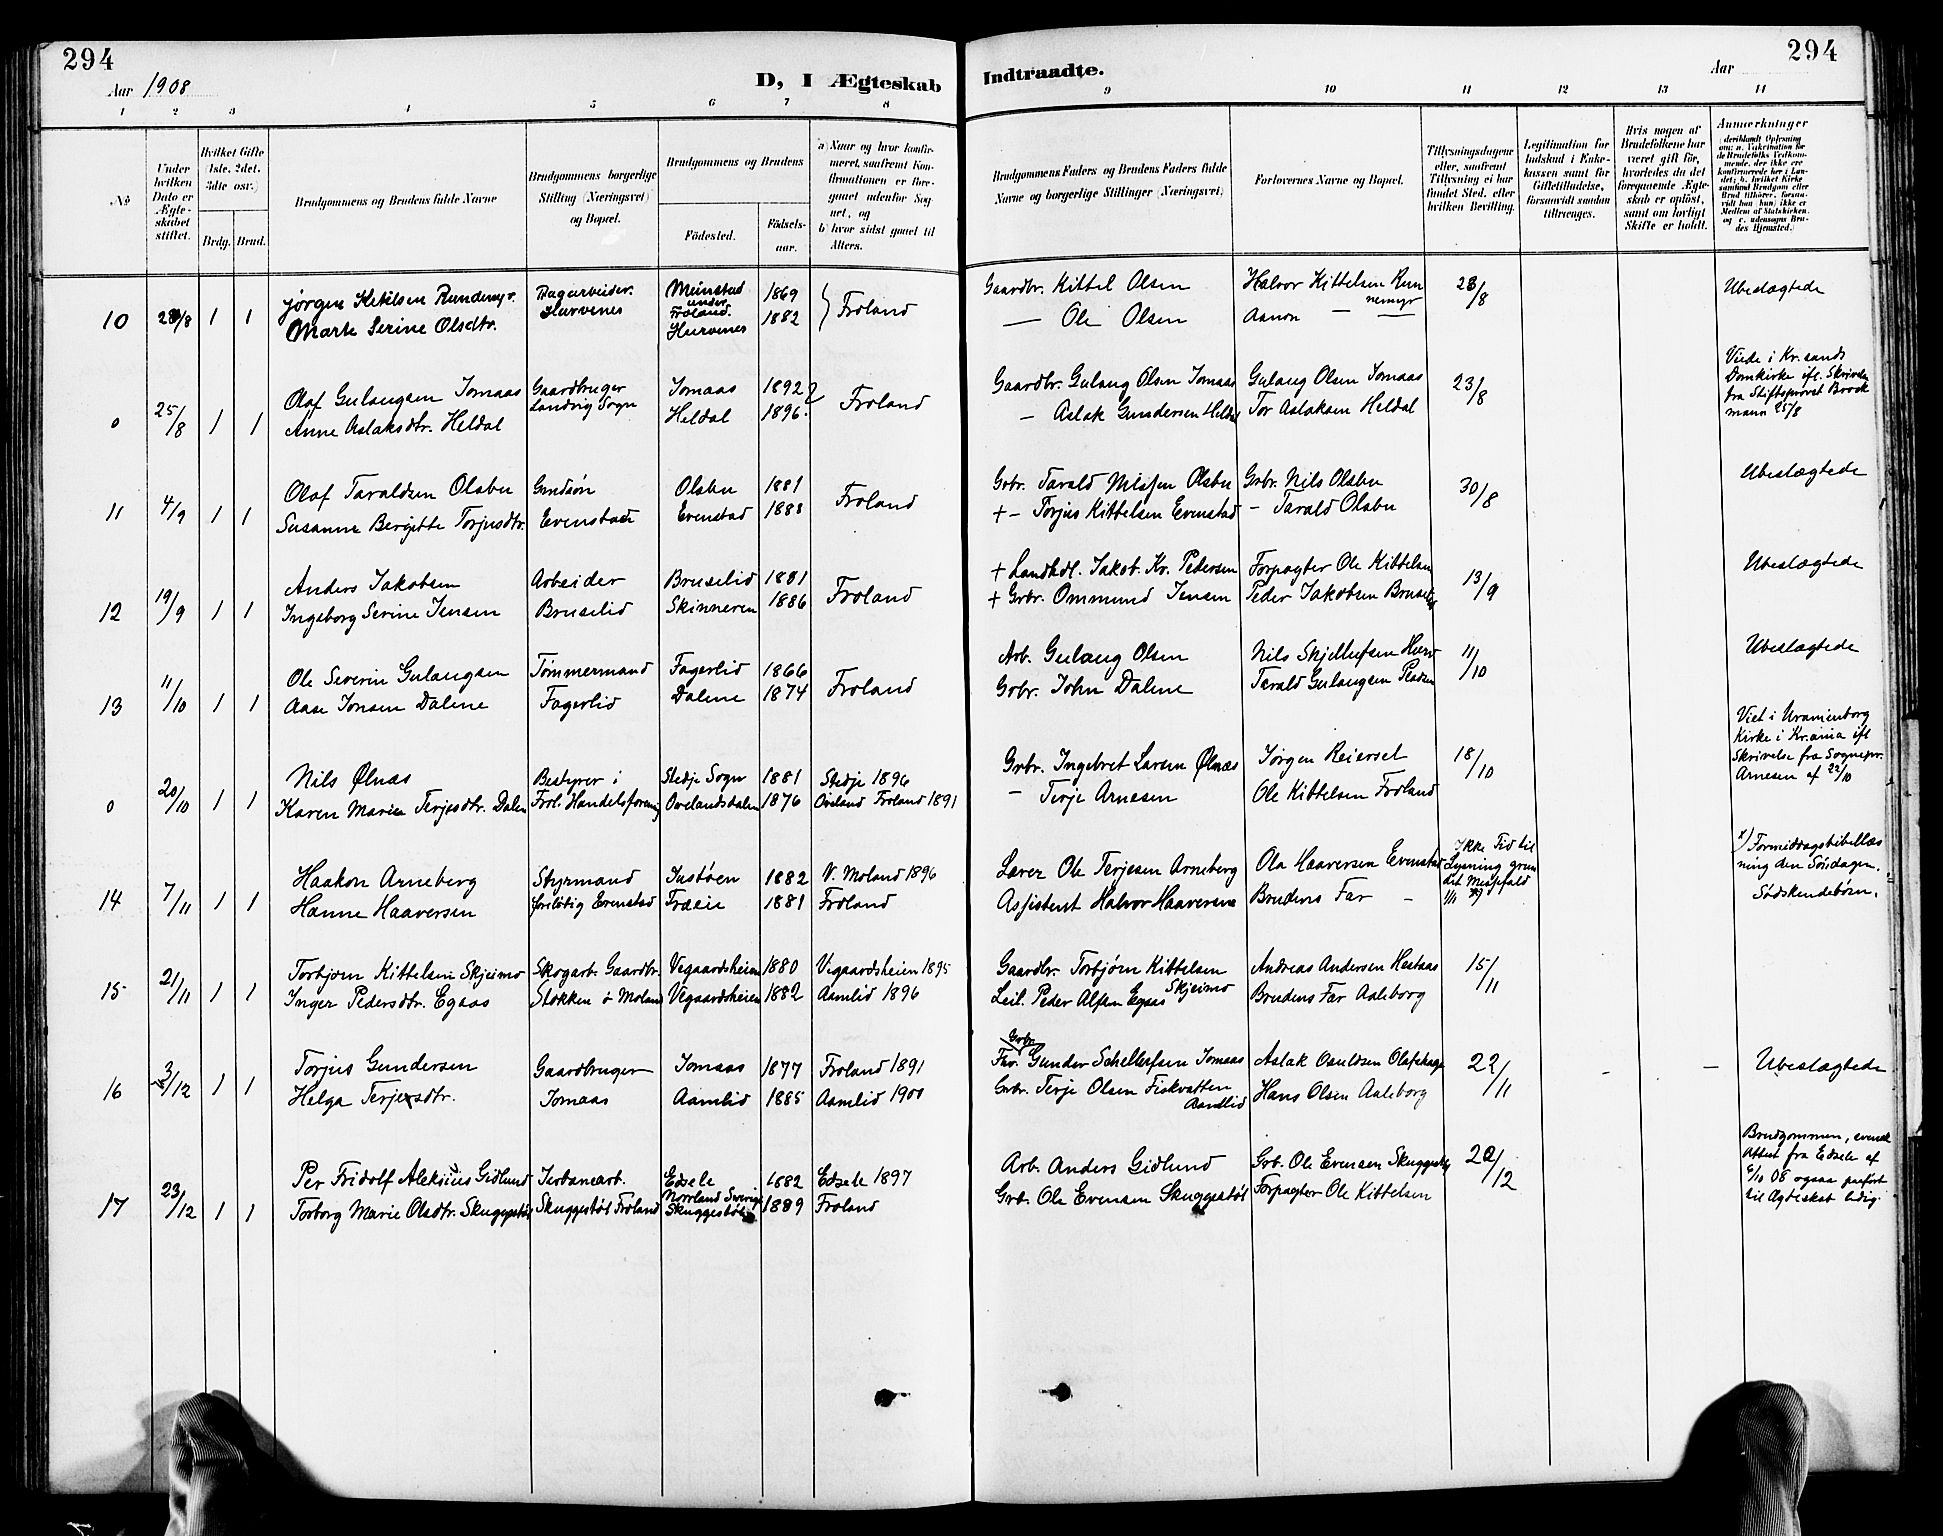 294
Aar 1908
D, I Ægteskab Indtraadte.
Aar
294
1 2 3 4 5 6 7 8 9 10 11 12 13 14
No
Under hvilken Dato er Ægteskabet stiftet.
Hvilket Gifte (1ste, 2det, 3die osv.)
Brdg. Brud.
Brudgommens og Brudens fulde Navne
Brudgommens borgerlige Stilling (Næringsvei) og Bopæl.
Brudgommens og Brudens
Fødested.
Fødselsaar.
a) Naar og hvor konfirmeret, saafremt Konfirmationen er foregaaet udenfor Sognet, og
b) hvor sidst gaaet til Alters.
Brudgommens Faders og Brudens Faders fulde Navne og borgerlige Stillinger (Næringsvei)
Forlovernes Navne og Bopæl.
Tillysningsdagene eller, saafremt Tillysning ei har fundet Sted, efter hvilken Bevilling.
Legitimation for Indskud i Enkekassen samt for Giftetilladelse, forsaavidt saadan tiltrænges.
Hvis nogen af Brudefolkene har været gift før, hvorledes da det foregaaende Ægteskab er opløst, samt om lovligt Skifte er holdt.
Anmærkninger
10 28/8 1 1 Jørgen Ketilsen Dagarbeider. 1869 Froland Gaardbr. Kittel Olsen Halvor Kittelsen 23/8 Ubeslægtede
Marte Serine Olsdtr. Hurvenes under Froland. Hurvenes 1882 — Ole Olsen Aanon — —
0 25/8 1 1 Olaf Gulaugsen Jomaas Gaardbruger Jomaas 1892 Froland Gaardbr. Gulaug Olsen Jomaas Gulaug Olsen Jomaas 23/8 Viede i Kr.sands
Anne Aslaksdtr. Heldal Landvig Sogn Heldal 1896. — Aslak Gundersen Heldal Tor Aslaksen Heldal Domkirke ifl. Skrivelse
fra Stiftsprovst Brock
mann 25/8
11 4/9 1 1 Olaf Taraldsen Olsbu Olsbu 1881 Froland Grbr. Tarald Nilsen Olsbu Grbr. Nils Olsbu 30/8 Ubeslægtede
Susanne Bergitte Torjusdtr. Evenstad Evenstad 1888 + – Torjus Kittelsen Evenstad – Tarald Olsbu
12 19/9 1 1 Anders Jakobsen Arbeider Bruselid 1881 Froland + Landhdl. Jakob Kr. Pedersen Forpagter Ole Kittelsen 13/9 Ubeslægtede
Ingeborg Serine Jensen Bruselid Skinneren 1886 + Grbr. Ommund Jensen Peder Jakobsen Bruselid
13 11/10 1 1 Ole Severin Gulaugsen Tømmermand Fagerlid 1866 Froland Arb. Gulaug Olsen Nils Skjellufsen 11/10 Ubeslægtede
Aase Jonsen Dalene Fagerlid Dalene 1874 Grbr. John Dalene Tarald Gulaugsen
0 20/10 1 1 Nils Ølnæs Bestyrer i Stedje Sogn 1881 Stedje 1896 Grbr. Ingebret Larsen Ølnæs Jørgen Reiersel 18/10 Viet i Uranienborg
Karen Marie Terjesdtr. Dalen Frol. Handelsforening Ovelandsdalen 1876 Øveland Froland 1891 – Terje Arnesen Ole Kittelsen Froland Kirke i Kr.ania ifl
Skrivelse fra Sognepr.
Arnesen af 22/10
14 7/11 1 1 Haakon Arneberg Styrmand Justøen 1882 V. Moland 1896 Lærer Ole Terjesen Arneberg Ola Haaversen Evenstad Ikke Tid til x) Formiddagsbibellæs
Hanne Haaversen foreløbig Evenstad 1881 Froland Assistent Halvor Haaversen Brudens Far – Lysning ning den Søndagen.
Sødskendebørn.
15 21/11 1 1 Torbjørn Kittelsen Skjeimo Skogarb. Gaardbr. Vegaardsheien 1880 Vegaardsheien 1895 Gaardbr. Torbjørn Kittelsen Skjeimo Andreas Andersen Hestaas 15/11
Inger Pedersdtr. Egaas Stokken ø Moland Vegaardsheien 1882 Aamlid 1896 Leil. Peder Alfsen Egaas Brudens Far Aaleborg
16 3/12 1 1 Torjus Gundersen Gaardbruger Jomaas 1877 Froland 1891 Grbr. Gunder Schellefsen Jomaas Aslak 22/11 Ubeslægtede
Helga Terjesdtr. Jomaas Aamlid 1885 Aamlid 1900 Grbr. Terje Olsen Fiskvatten Aamlid Hans Olsen Aaleborg
17 23/12 1 1 Per Fridolf Aleksius Gidlund Jerbanearb. Edsele 1882 Edsele 1897 Arb. Anders Gidlund Grb. Ole Evensen Skuggestøl 20/12 Brudgommen, svensk
Torborg Marie Olsdtr. Skuggestøl Skuggestøl Froland Norrland Sverige Skuggestøl 1889 Froland Grb. Ole Evensen Skuggestøl Forpagter Ole Kittelsen Attest fra Edsele af
6/10 08 ogsaa anført
til Ægteskab ledig.